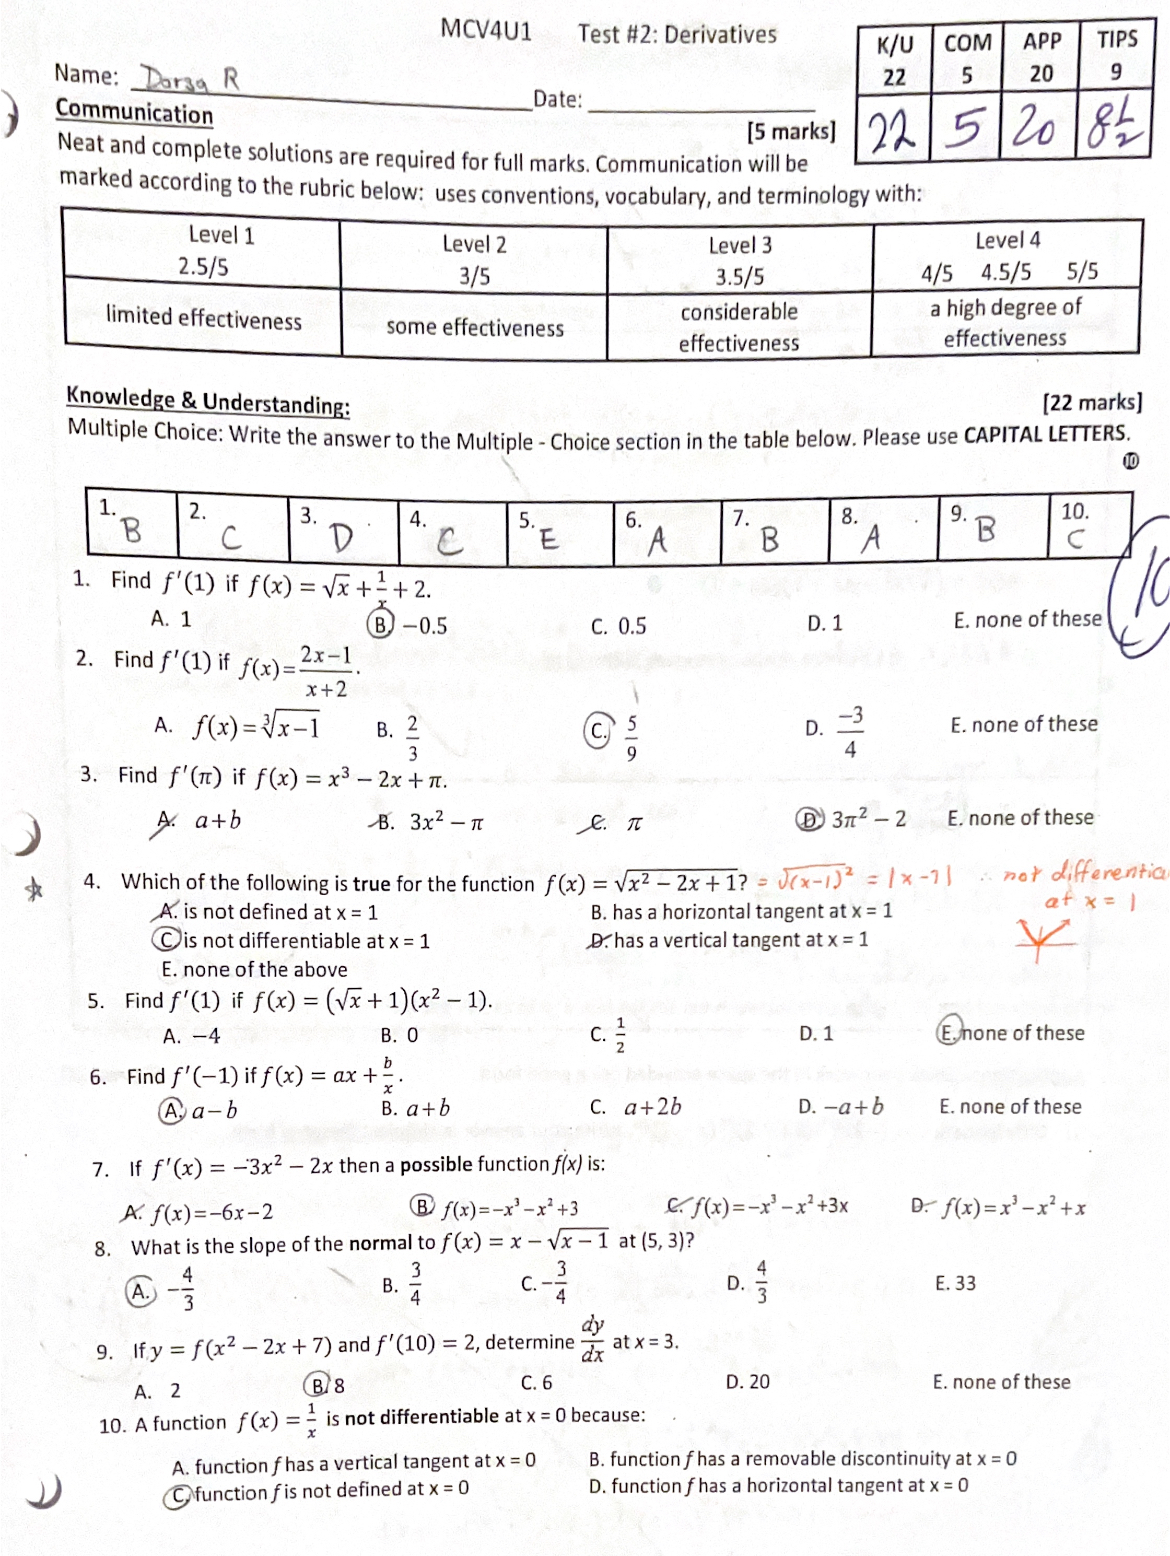 MCV4U1 Test #2: Derivatives
K/U COM APP TIPS
22 5 20 9
22 5 20 8½
Name: Dorsa R Date:
Communication [5 marks]
Neat and complete solutions are required for full marks. Communication will be
marked according to the rubric below: uses conventions, vocabulary, and terminology with:
Level 1 Level 2 Level 3 Level 4
2.5/5 3/5 3.5/5 4/5 4.5/5 5/5
limited effectiveness some effectiveness considerable effectiveness a high degree of effectiveness
Knowledge & Understanding: [22 marks]
Multiple Choice: Write the answer to the Multiple - Choice section in the table below. Please use CAPITAL LETTERS.
⑩
1. B 2. C 3. D 4. C 5. E 6. A 7. B 8. A 9. B 10. C
10
1. Find f'(1) if f(x) = √x + 1/x + 2.
A. 1 B. −0.5 C. 0.5 D. 1 E. none of these
2. Find f'(1) if f(x) = (2x−1)/(x+2).
A. f(x) = ∛(x−1) B. 2/3 C. 5/9 D. −3/4 E. none of these
3. Find f'(π) if f(x) = x³ − 2x + π.
A. a+b B. 3x² − π C. π D. 3π² − 2 E. none of these
4. Which of the following is true for the function f(x) = √(x² − 2x + 1)? = √(x−1)² = |x−1| ∴ not differentia
at x = 1
A. is not defined at x = 1 B. has a horizontal tangent at x = 1
C. is not differentiable at x = 1 D. has a vertical tangent at x = 1
E. none of the above
5. Find f'(1) if f(x) = (√x + 1)(x² − 1).
A. −4 B. 0 C. 1/2 D. 1 E. none of these
6. Find f'(−1) if f(x) = ax + b/x.
A. a−b B. a+b C. a+2b D. −a+b E. none of these
7. If f'(x) = −3x² − 2x then a possible function f(x) is:
A. f(x)=−6x−2 B. f(x)=−x³−x²+3 C. f(x)=−x³−x²+3x D. f(x)=x³−x²+x
8. What is the slope of the normal to f(x) = x − √(x−1) at (5, 3)?
A. −4/3 B. 3/4 C. −3/4 D. 4/3 E. 33
9. If y = f(x² − 2x + 7) and f'(10) = 2, determine dy/dx at x = 3.
A. 2 B. 8 C. 6 D. 20 E. none of these
10. A function f(x) = 1/x is not differentiable at x = 0 because:
A. function f has a vertical tangent at x = 0 B. function f has a removable discontinuity at x = 0
C. function f is not defined at x = 0 D. function f has a horizontal tangent at x = 0